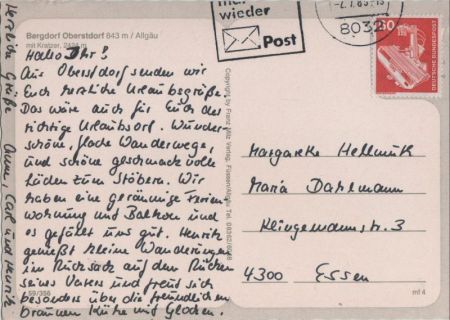 Bergdorf Oberstdorf 843 m / Allgäu
mit Kratzer, 2424 m
Hallo Ihr!
Aus Oberstdorf senden wir
Euch herzliche Urlaubsgrüße.
Das wäre auch für Euch der
richtige Urlaubsort. Wunder-
schöne, flache Wanderwege,
und schöne geschmackvolle
Läden zum Stöbern. Wir
haben eine geräumige Ferien-
wohnung mit Balkon und
es gefällt uns gut. Henrik
genießt kleine Wanderungen
im Rucksack auf dem Rücken
seines Vaters und freut sich
besonders über die freundlichen
braunen Kühe mit Glocken.
Herzliche Grüße Anne, Carl und Henrik
59/356
Copyright by Franz Milz Verlag, Füssen/Allgäu Tel. 08362/
mal
wieder
Post
8032
60
DEUTSCHE BUNDESPOST
Margarete Hellmuth
Maria Dahlmann
Klingemannstr. 3
4300 Essen
mf 4